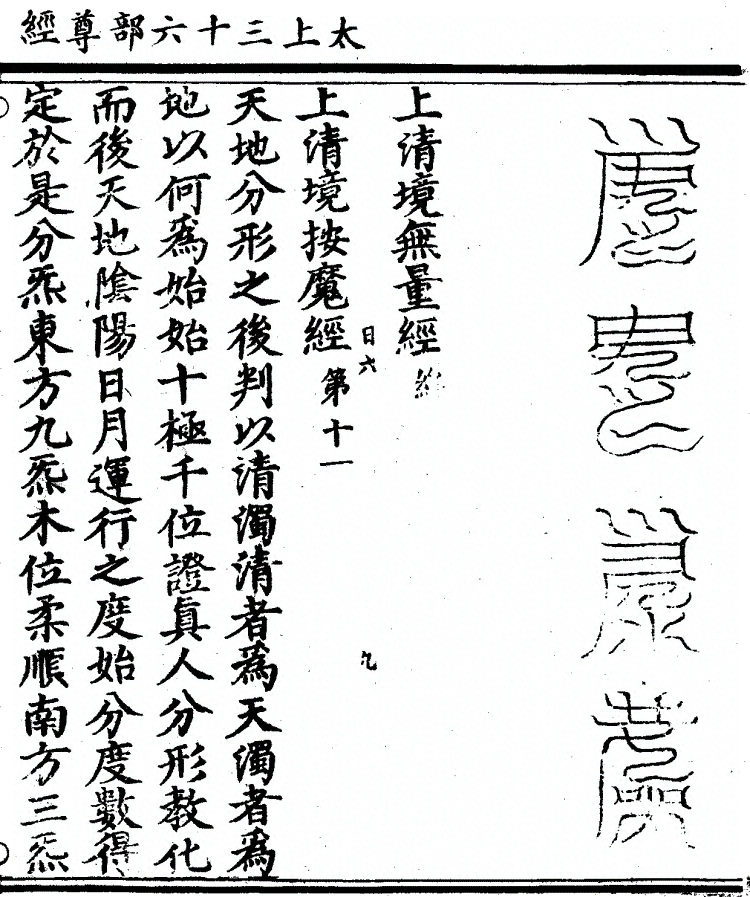 太上三十六部尊經
上清境無量經終
上清境按魔經第十一
日六
九
天地分形之後判以清濁清者為天濁者為
地以何為始始十極千位證真人分形教化
而後天地陰陽日月運行之度始分度數得
定於是分炁東方九炁木位柔順南方三炁